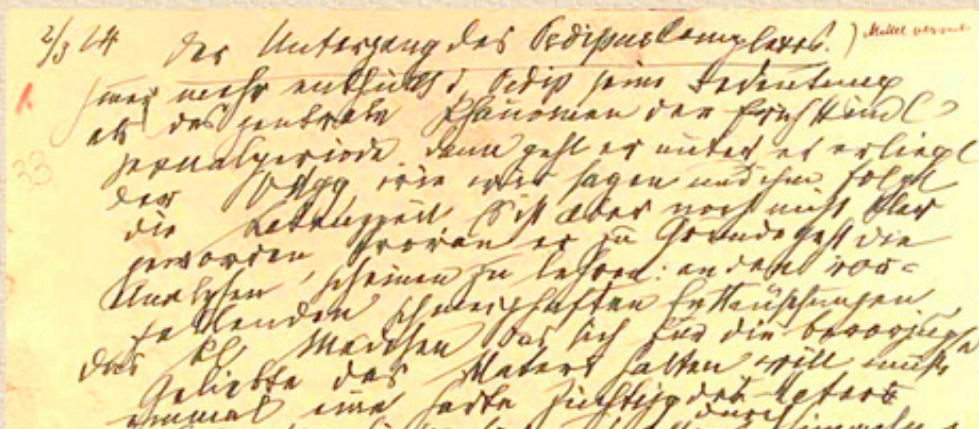 2/3 24 Der Untergang des Oedipuskomplexes.
Immer mehr enthüllt d Oedip seine Bedeutung
als das zentrale Phänomen der frühkindl
Sexualperiode. Dann geht er unter, er erliegt
der Vdgg, wie wir sagen und ihm folgt
die Latenzzeit. Es ist aber noch nicht klar
geworden, woran er zu Grunde geht die
Analysen scheinen zu lehren: an den vor=
fallenden schmerzhaften Enttäuschungen
das kl. Mädchen das sich für die bevorzugte
Geliebte des Vaters halten will muß
einmal eine harte Züchtig des Vaters